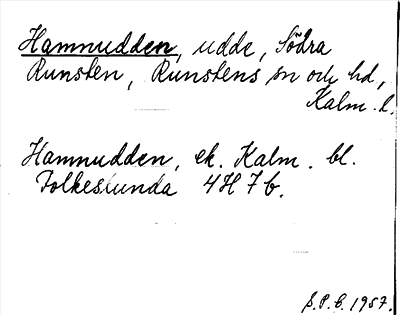 Hamnudden, udde, Södra
Runsten, Runstens sn och hd,
Kalm. l.
Hamnudden, ek. Kalm. bl.
Folkeslunda 4H7b.
S.P.B. 1957.